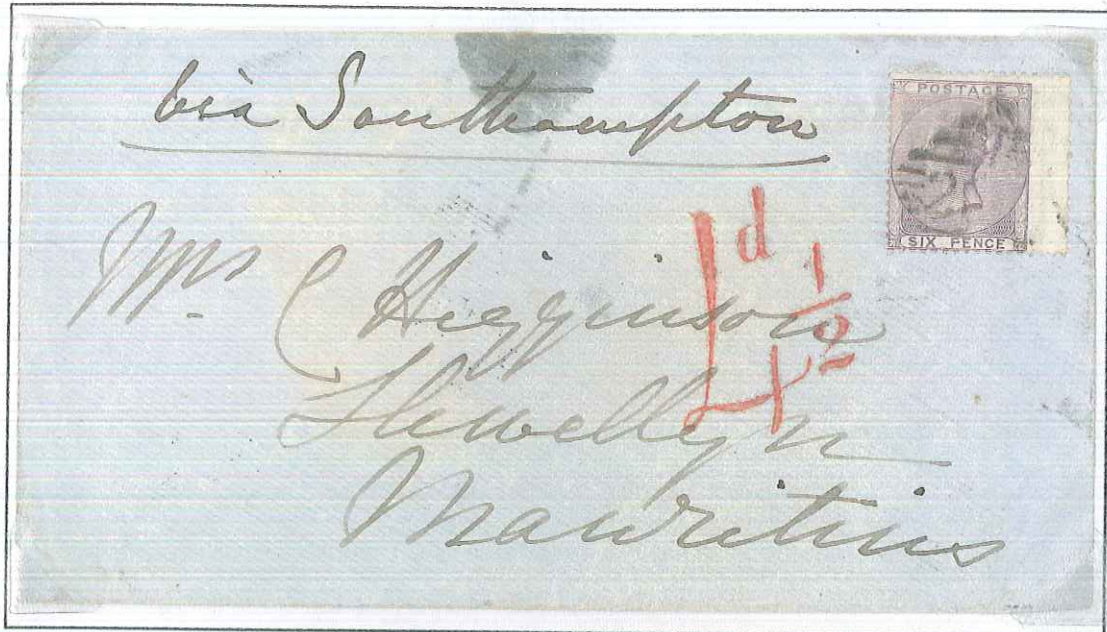 via Southampton
POSTAGE
SIX PENCE
Mrs C Higginson
4d 1/2
Llewellyn
Mauritius